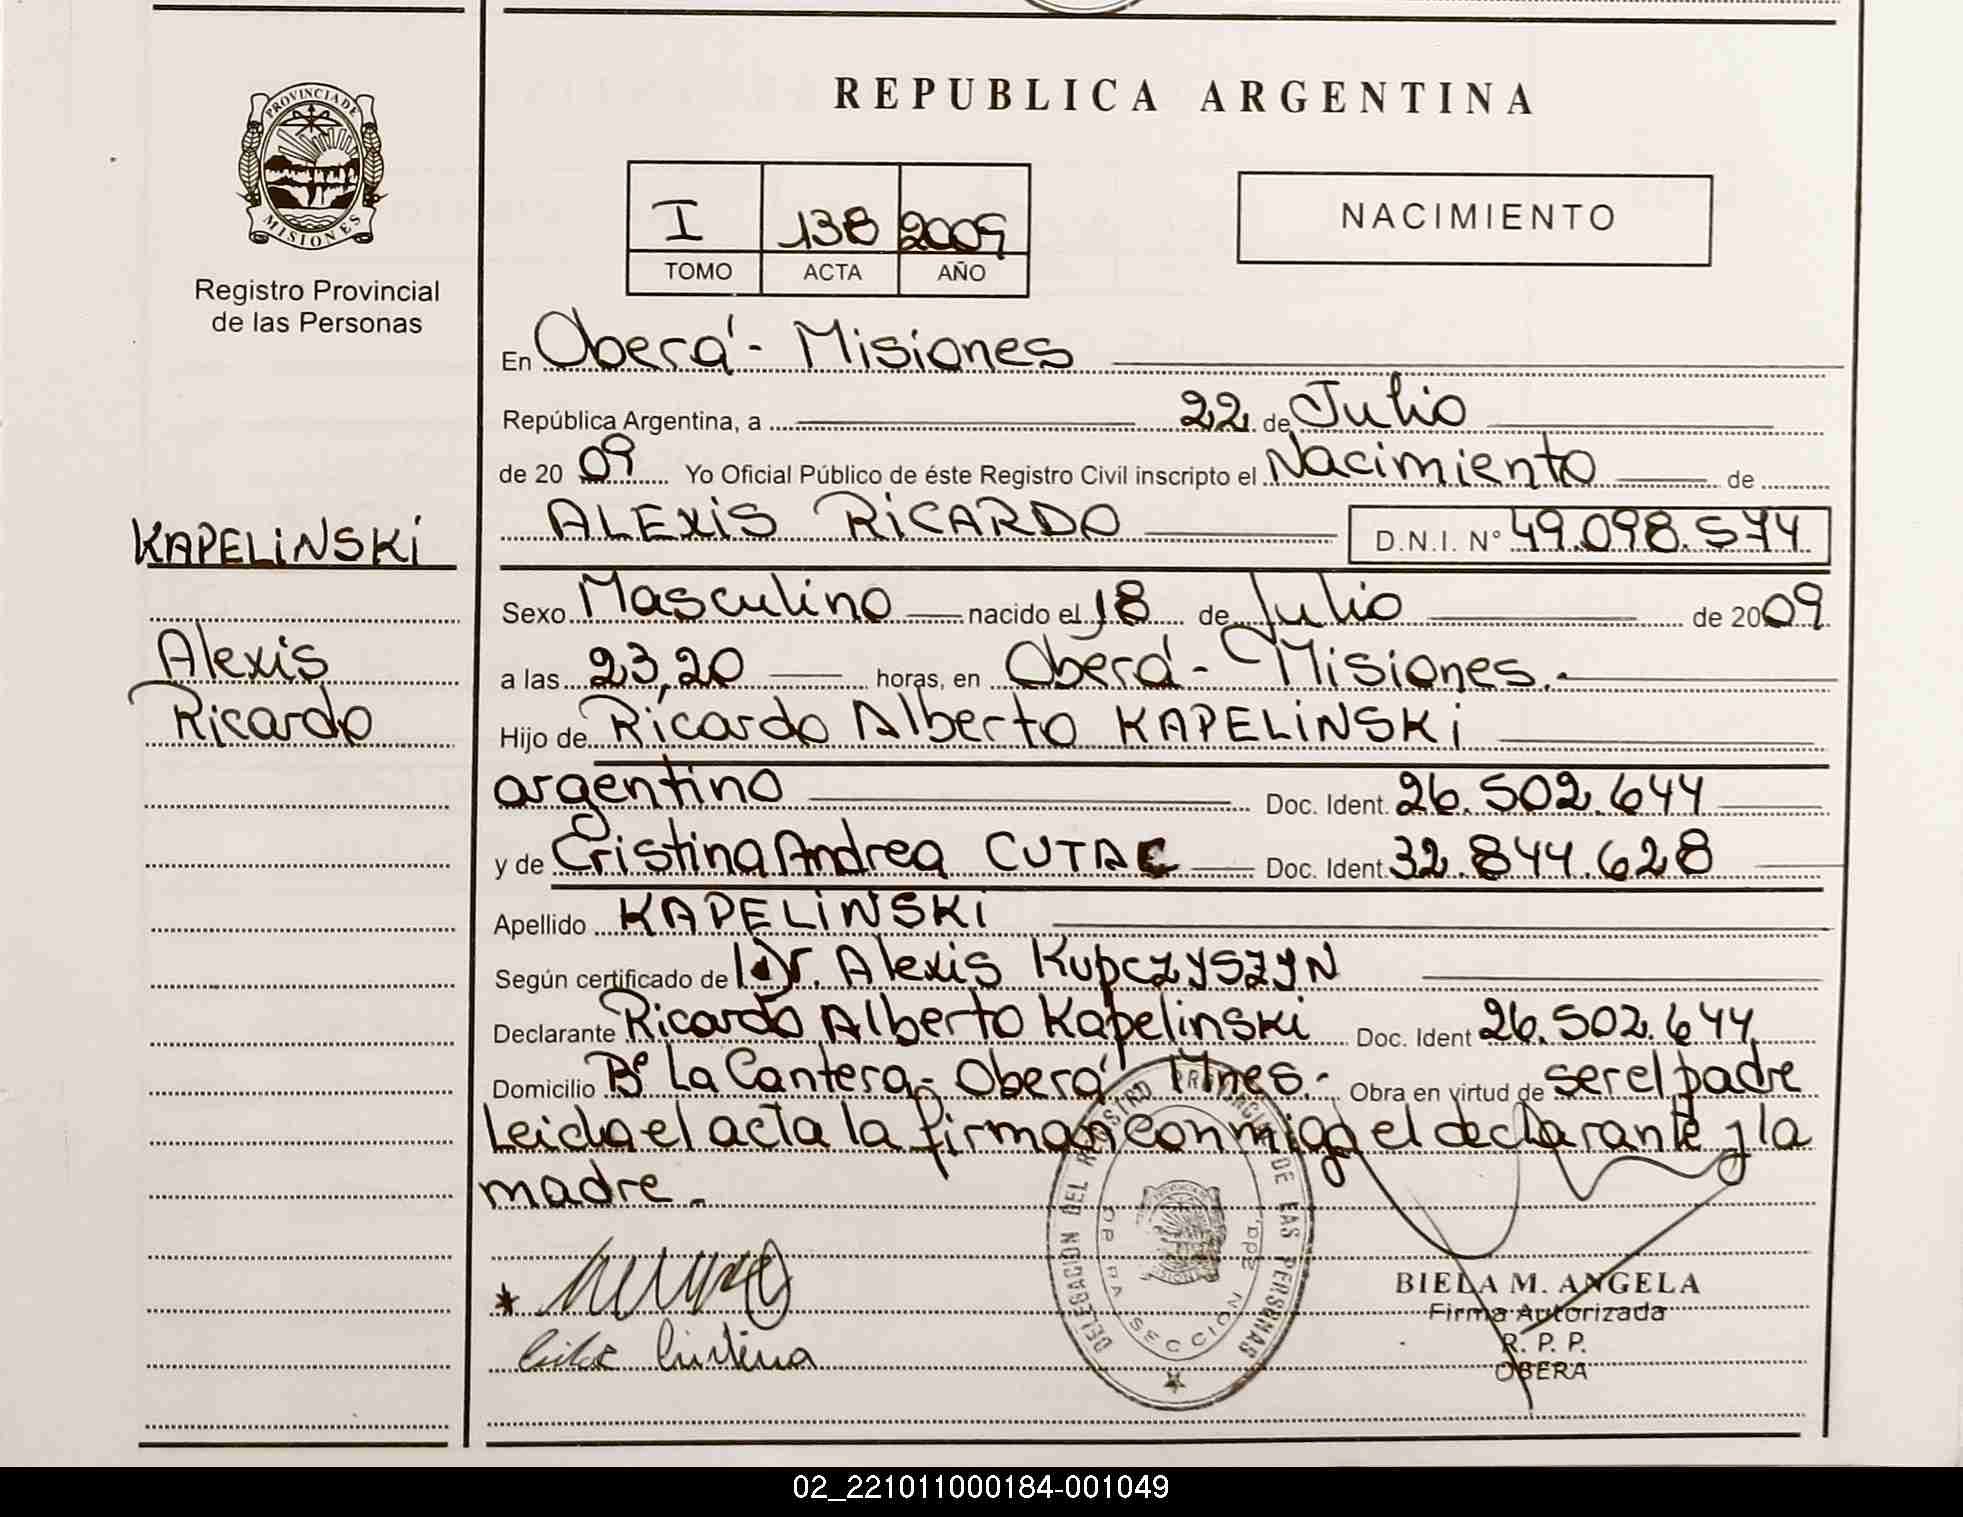 REPUBLICA ARGENTINA
PROVINCIA DE
MISIONES
Registro Provincial
de las Personas
I 138 2009
TOMO ACTA AÑO
NACIMIENTO
En Oberá - Misiones
República Argentina, a 22 de Julio
de 20 09 Yo Oficial Público de éste Registro Civil inscripto el Nacimiento de
KAPELINSKI
ALEXIS RICARDO D.N.I. N° 49.098.574
Sexo Masculino nacido el 18 de Julio de 2009
Alexis
a las 23,20 horas, en Oberá - Misiones.-
Ricardo
Hijo de Ricardo Alberto KAPELINSKI
argentino Doc. Ident. 26.502.644
y de Cristina Andrea CUTAC Doc. Ident. 32.844.628
Apellido KAPELINSKI
Según certificado de Dr. Alexis KUPCZYSZYN
Declarante Ricardo Alberto Kapelinski Doc. Ident 26.502.644
Domicilio Bº La Cantera - Oberá Mnes.- Obra en virtud de ser el padre
Leida el acta la firman conmigo el declarante y la
madre.
DELEGACION DEL REGISTRO PROVINCIAL DE LAS PERSONAS
2da. SECCION
BIELA M. ANGELA
Firma Autorizada
R. P. P.
OBERA
Cristina
02_221011000184-001049